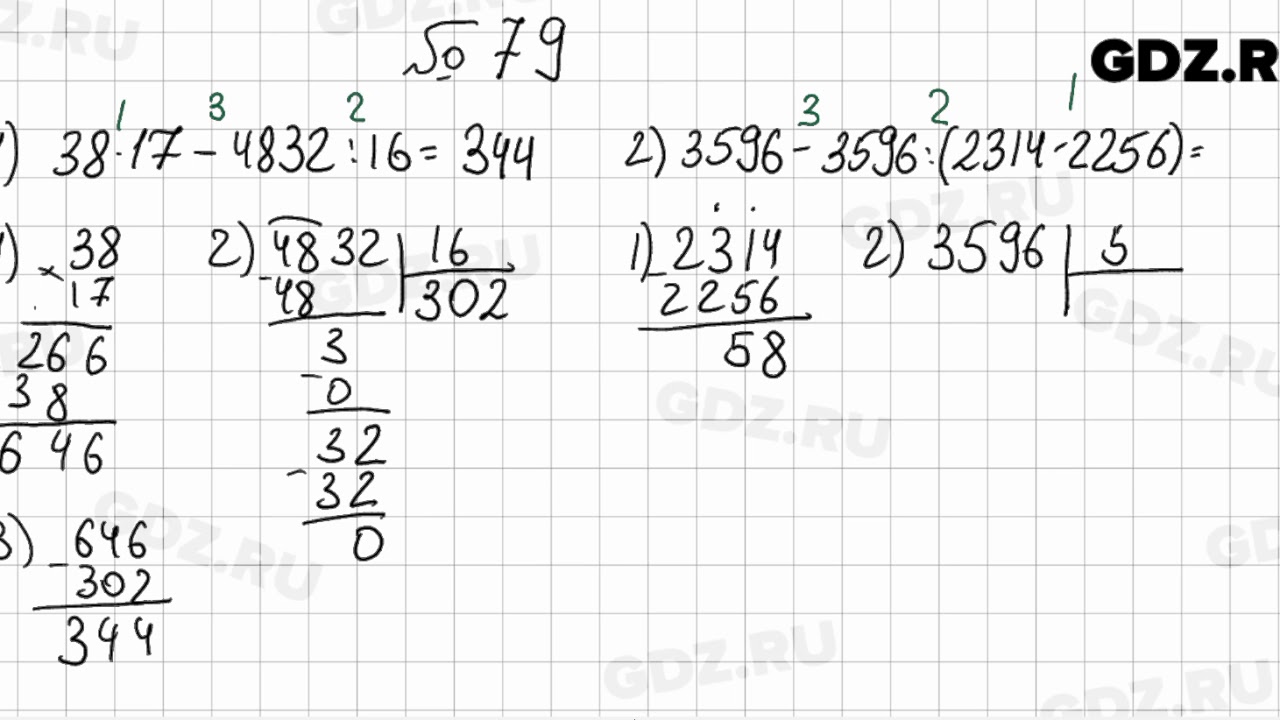 № 79
GDZ.R
1 3 2
3 2 1
) 38·17 - 4832 : 16 = 344
2) 3596 - 3596 : (2314 - 2256) =
) × 38
17
266
38
646
2) 4832 | 16
- 48 302
3
- 0
32
- 32
0
3) - 646
302
344
1) - 2314
2256
58
2) 3596 | 5
GDZ.RU
GDZ.RU
GDZ.RU
GDZ.RU
GDZ.RU
GDZ.RU
GDZ.RU
GDZ.RU
GDZ.RU